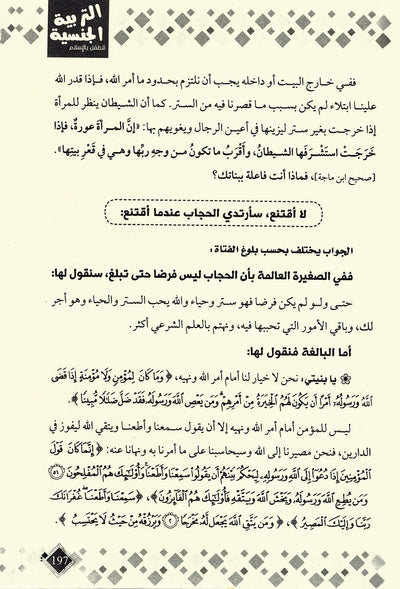 التربية
الجنسية
للطفل بالإسلام
ففي خارج البيت أو داخله يجب أن نلتزم بحدود ما أمر الله، فإذا قدر الله
علينا ابتلاء لم يكن بسبب ما قصرنا فيه من الستر. كما أن الشيطان ينظر للمرأة
إذا خرجت بغير ستر ليزينها في أعين الرجال ويغويهم بها: «إنَّ المرأةَ عورةٌ، فإذا
خَرَجَتْ استَشْرَفَها الشيطانُ، وأَقْرَبُ ما تكونُ من وجهِ ربِّها وهي في قَعْرِ بيتِها».
[صحيح ابن ماجة]، فماذا أنت فاعلة ببناتك؟
لا أقتنع، سأرتدي الحجاب عندما أقتنع:
الجواب يختلف بحسب بلوغ الفتاة:
ففي الصغيرة العالمة بأن الحجاب ليس فرضا حتى تبلغ، سنقول لها:
حتى ولو لم يكن فرضا فهو ستر وحياء والله يحب الستر والحياء وهو أجر
لك، وباقي الأمور التي تحببها فيه، ونهتم بالعلم الشرعي أكثر.
أما البالغة فنقول لها:
يا بنيتي: نحن لا خيار لنا أمام أمر الله ونهيه، ﴿وَمَا كَانَ لِمُؤْمِنٍ وَلَا مُؤْمِنَةٍ إِذَا قَضَى
اللَّهُ وَرَسُولُهُ أَمْرًا أَن يَكُونَ لَهُمُ الْخِيَرَةُ مِنْ أَمْرِهِمْ وَمَن يَعْصِ اللَّهَ وَرَسُولَهُ فَقَدْ ضَلَّ ضَلَالًا مُّبِينًا﴾.
ليس للمؤمن أمام أمر الله ونهيه إلا أن يقول سمعنا وأطعنا ويتقي الله ليفوز في
الدارين، فنحن مصيرنا إلى الله وسيحاسبنا على ما أمرنا به ونهانا عنه: ﴿إِنَّمَا كَانَ قَوْلَ
الْمُؤْمِنِينَ إِذَا دُعُوا إِلَى اللَّهِ وَرَسُولِهِ لِيَحْكُمَ بَيْنَهُمْ أَن يَقُولُوا سَمِعْنَا وَأَطَعْنَا وَأُولَٰئِكَ هُمُ الْمُفْلِحُونَ ۝٥١
وَمَن يُطِعِ اللَّهَ وَرَسُولَهُ وَيَخْشَ اللَّهَ وَيَتَّقْهِ فَأُولَٰئِكَ هُمُ الْفَائِزُونَ﴾، ﴿سَمِعْنَا وَأَطَعْنَا غُفْرَانَكَ
رَبَّنَا وَإِلَيْكَ الْمَصِيرُ﴾، ﴿وَمَن يَتَّقِ اللَّهَ يَجْعَل لَّهُ مَخْرَجًا ۝٢ وَيَرْزُقْهُ مِنْ حَيْثُ لَا يَحْتَسِبُ﴾.
197